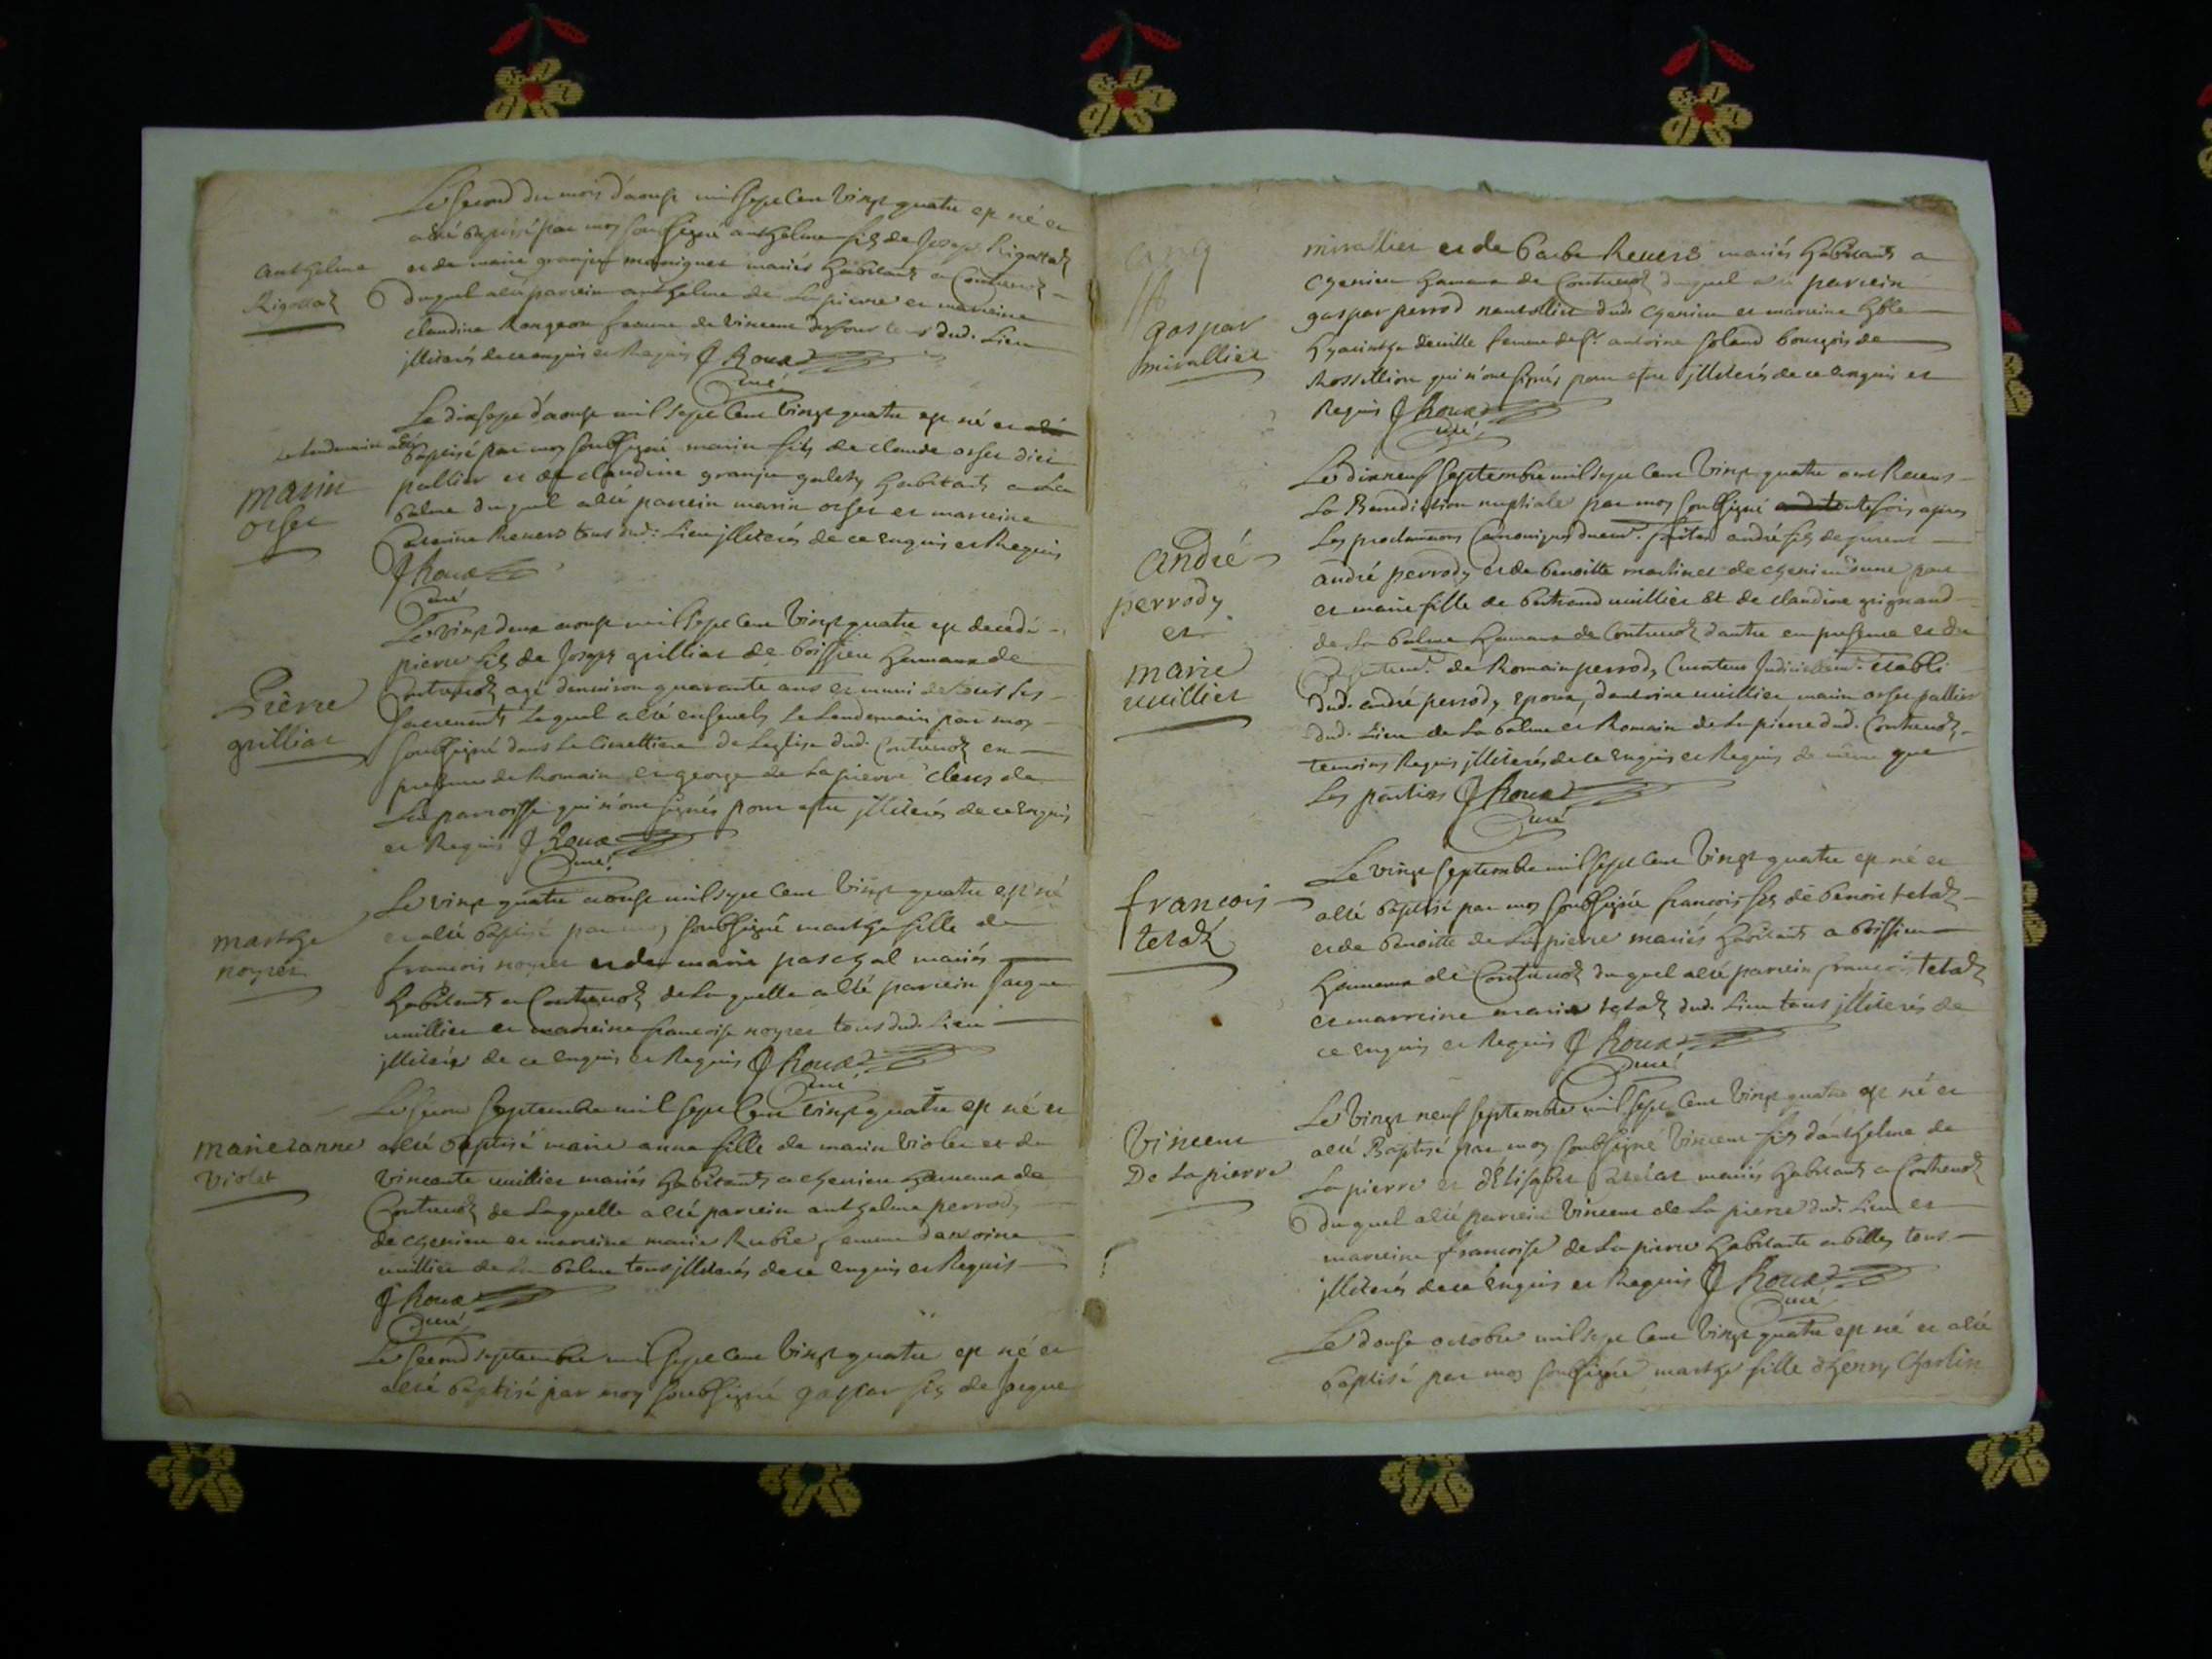 Le second du mois d'aoust mil sept cent vingt quatre est né et
a été baptisé par moy soubsigné anthelme fils de Joseph Rigottat
et de marie granjeu mariés habitants a Contrevoz
anthelme
Rigottaz
duquel a été parrein anthelme de Lapierre et marreine
claudine Rongeon femme de vincent tous dud. Lieu
illiterés de ce enquis et Requis J Roux
Curé
Le dixsept d'aoust mil sept cent vingt quatre est né et
le lendemain a été
baptisé par moy soubsigné marin fils de claude orset dici
pallier et de claudine granjeu habitants a La
marin
orset
balme duquel a été parrein marin orset et marreine
Revers tous dud. Lieu illiterés de ce enquis et Requis
J Roux
Curé
Le vingt deux aoust mil sept cent vingt quatre est decedé
pierre fils de Joseph grilliat de boissieu hameau de
Contrevoz agé denviron quarante ans et muni de tous ses
Pierre
grilliat
sacrements Lequel a été enseveli Le Lendemain par moy
soubsigné dans Le Cimettiere de Leglise dud. Contrevoz en
presence de Romain et george de Lapierre clercs de
La parroisse qui n'ont signés pour estre illiterés de ce enquis
et Requis J Roux
Curé
Le vingt quatre aoust mil sept cent vingt quatre est né
et a été baptisé par moy soubsigné marthe fille de
marthe
noyret
francois noyret et de marie paschal mariés
habitants a Contrevoz de Laquelle a été parrein Jaque
millier et marreine francoise noyret tous dud. Lieu
illiterés de ce enquis et Requis J Roux
Curé
Le second septembre mil sept cent vingt quatre est né et
marie anne
violet
a été baptisé marie anne fille de marin violet et de
vincente millier mariés habitants a chenieu hameau de
Contrevoz de Laquelle a été parrein anthelme perrody
de chenieu et marreine marie Rubie femme dantoine
millier de La balme tous illiterés de ce enquis et Requis
J Roux
Curé
Le second septembre mil sept cent vingt quatre est né et
a été baptisé par moy soubsigné gaspar fils de Jaque
mirallier et de barbe Revers mariés habitants a
chenieu hameau de Contrevoz duquel a été parrein
gaspar
mirallier
gaspar perrod dud. chenieu et marreine
hyacinthe femme de Sr. antoine bourgeois de
Rossillion qui n'ont signés pour estre illiterés de ce enquis et
Requis J Roux
Curé
Le dixneuf septembre mil sept cent vingt quatre ont Receus
La Benediction nuptiale par moy soubsigné toutefois apres
Les proclamations Canoniques duem.t faites andré fils de
andré
perrody
et
marie
millier
andré perrody et de benoitte martinet de chenieu d'une part
et marie fille de bertrand millier et de claudine grignand
de La balme hameau de Contrevoz d'autre en presence et du
de Romain perrody Curateur Judiciairem.t établi
dud. andré perrody epoux, dantoine millier marin orset pallier
dud. Lieu de La balme et Romain de Lapierre dud. Contrevoz
temoins Requis illiterés de ce enquis et Requis de même que
Les parties J Roux
Curé
Le vingt septembre mil sept cent vingt quatre est né et
francois
tetaz
a été baptisé par moy soubsigné francois fils de benoit tetaz
et de benoitte de Lapierre mariés habitants a boissieu
hameau de Contrevoz duquel a été parrein francois tetaz
et marreine marie tetaz dud. Lieu tous illiterés de
ce enquis et Requis J Roux
Curé
Le vingt neuf septembre mil sept cent vingt quatre est né et
vincent
De Lapierre
a été Baptisé par moy soubsigné vincent fils d'anthelme de
Lapierre et d'Elisabet mariés habitants a Contrevoz
duquel a été parrein vincent de Lapierre dud. Lieu et
marreine francoise de Lapierre habitante a belley tous
illiterés de ce enquis et Requis J Roux
Curé
Le douse octobre mil sept cent vingt quatre est né et a été
baptisé par moy soubsigné marthe fille d'henry Charlin